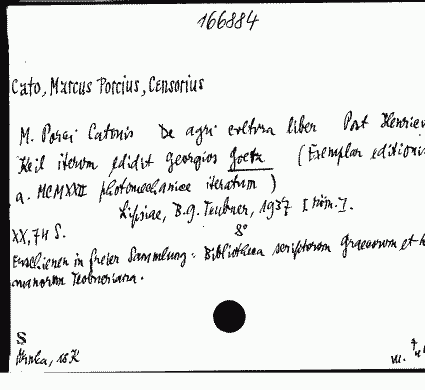 166884
Cato, Marcus Porcius, Censorius
M. Porci Catonis De agri cultura liber Post Henricu
Keil iterum edidit Georgius Goetz (Exemplar editionis
a. MCMXXII photomechanice iteratum)
Lipsiae, B.G. Teubner, 1937 [röm.].
XX, 74 S. 8°
Erschienen in freier Sammlung: Bibliotheca scriptorum Graecorum et R
manorum Teubneriana.
S